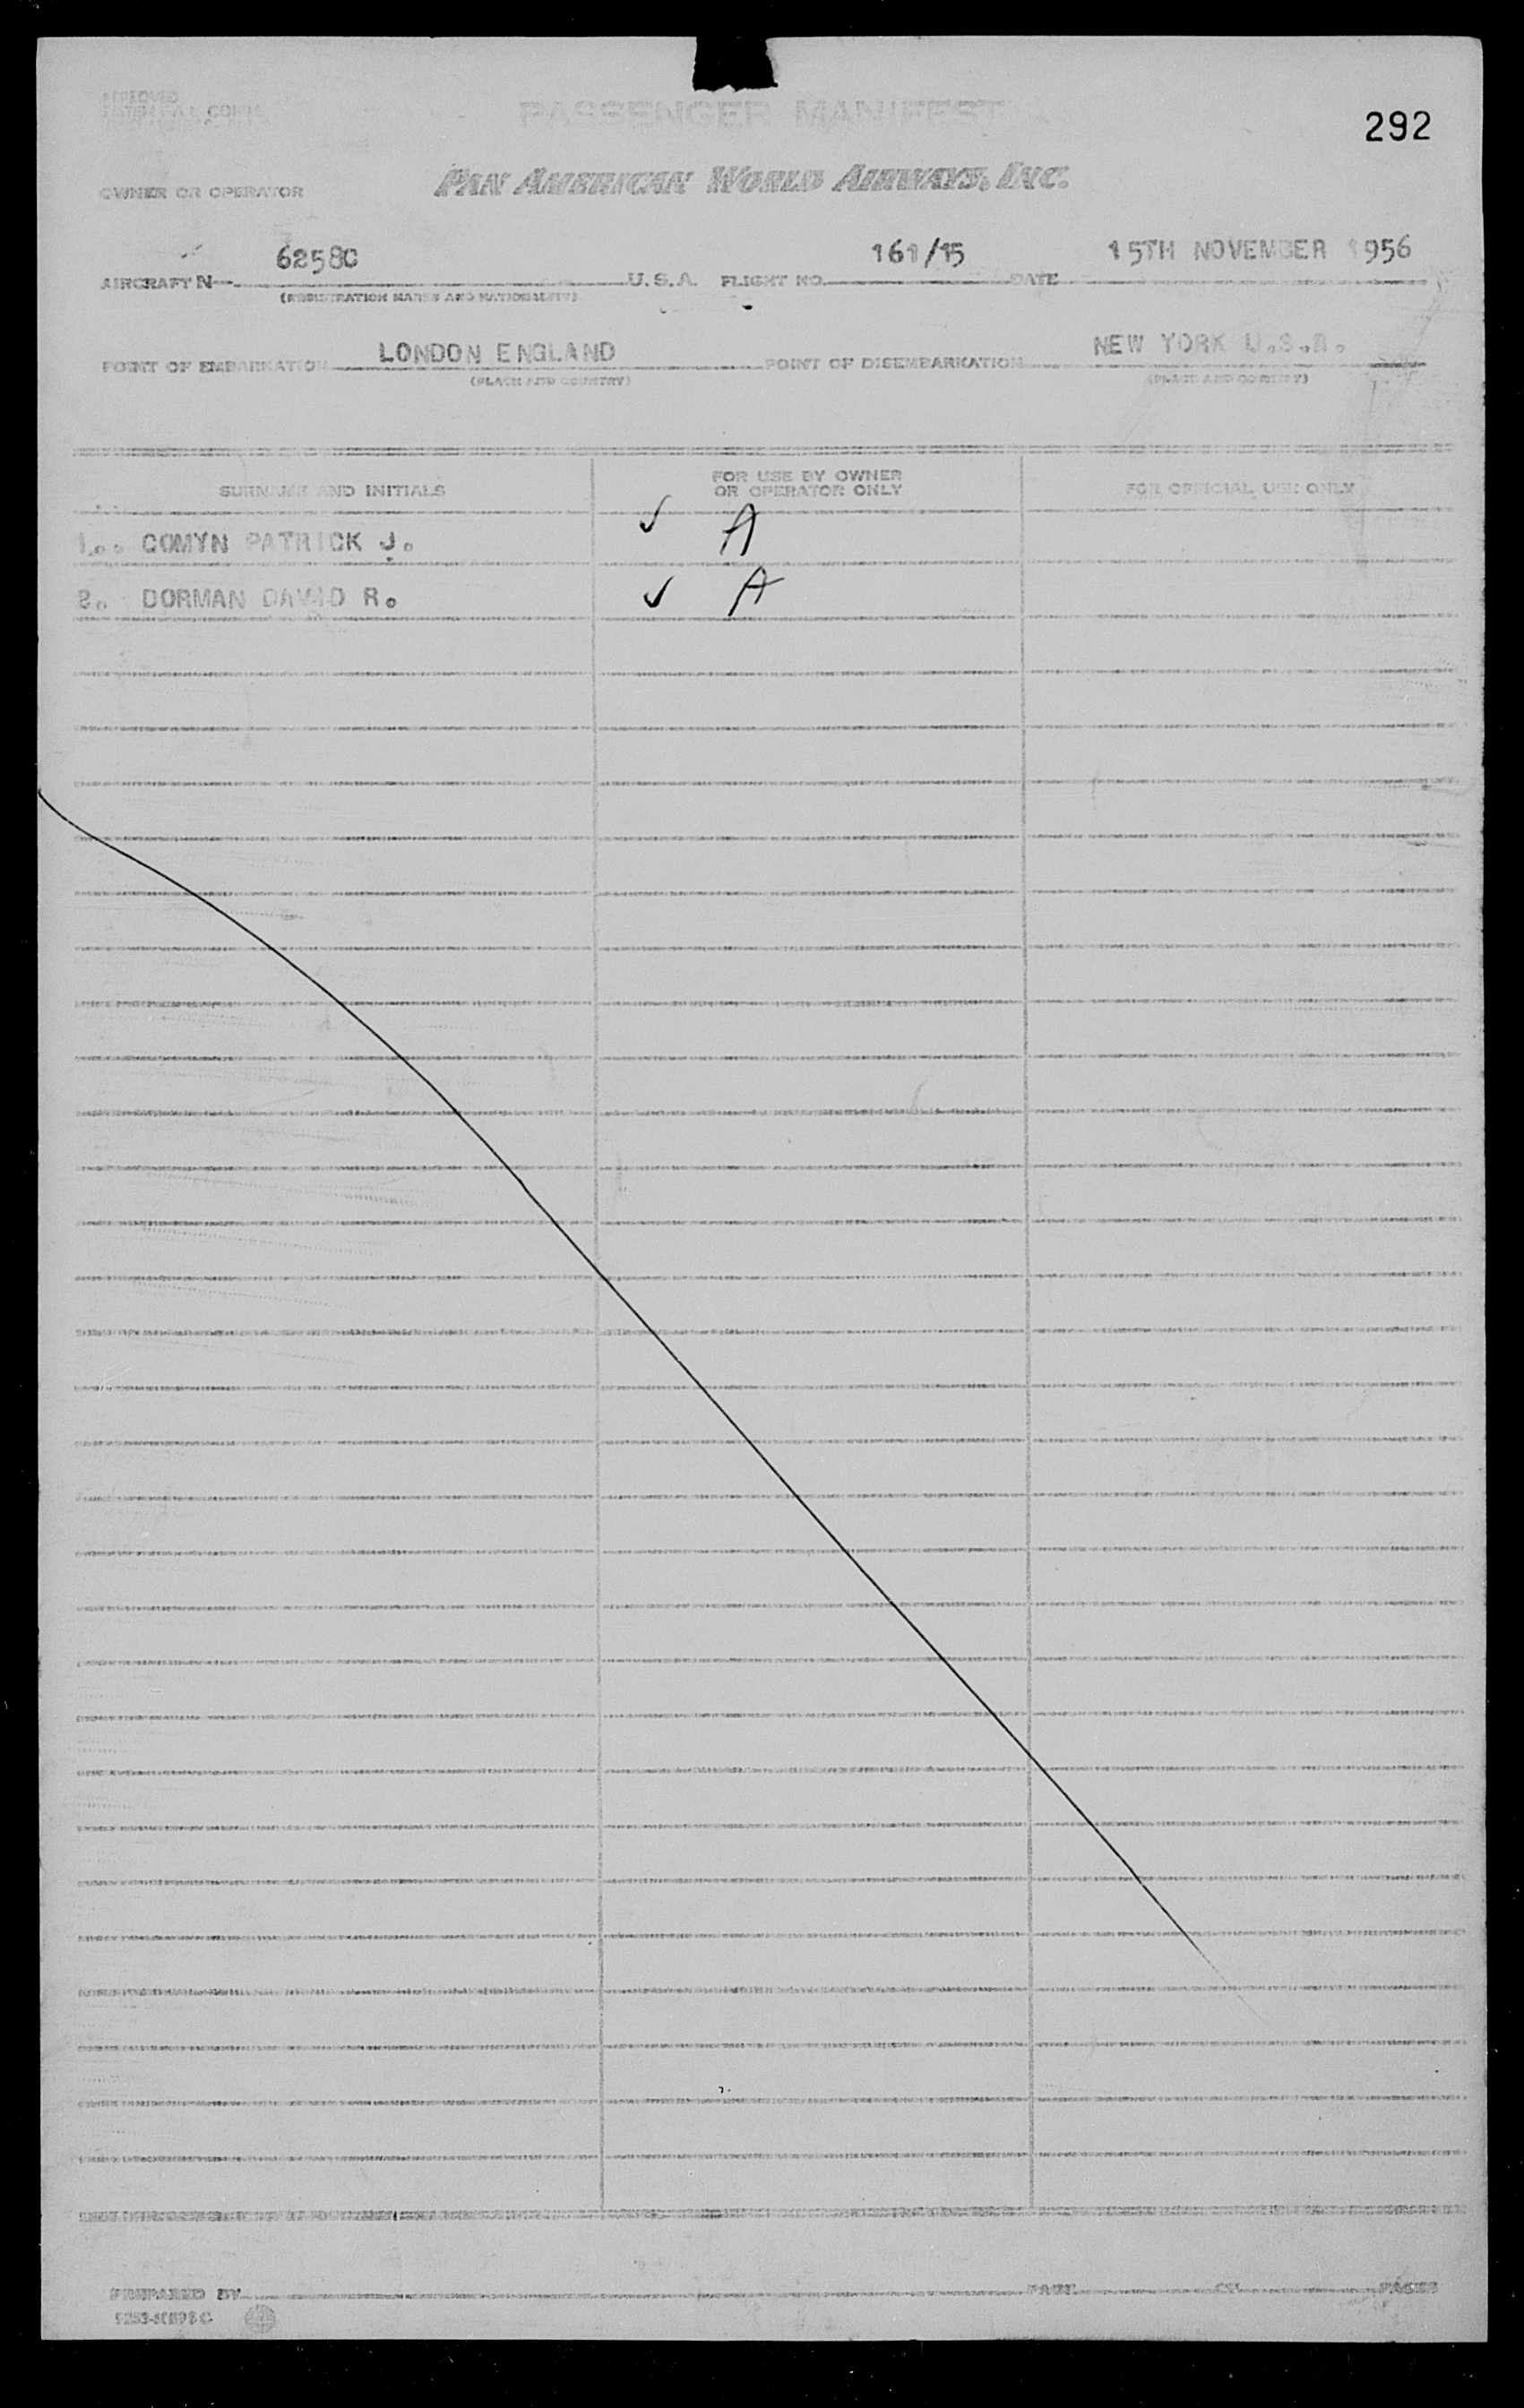 PASSENGER MANIFEST
292
OWNER OR OPERATOR PAN AMERICAN WORLD AIRWAYS, INC.
AIRCRAFT N- 6258C U.S.A. FLIGHT NO. 161/15 DATE 15TH NOVEMBER 1956
(REGISTRATION MARKS AND NATIONALITY)
POINT OF EMBARKATION LONDON ENGLAND POINT OF DISEMBARKATION NEW YORK U.S.A.
(PLACE AND COUNTRY) (PLACE AND COUNTRY)
SURNAME AND INITIALS FOR USE BY OWNER OR OPERATOR ONLY FOR OFFICIAL USE ONLY
1. COMYN PATRICK J. ✓ A
2. DORMAN DAVID R. ✓ A
PREPARED BY PAGE OF PAGES